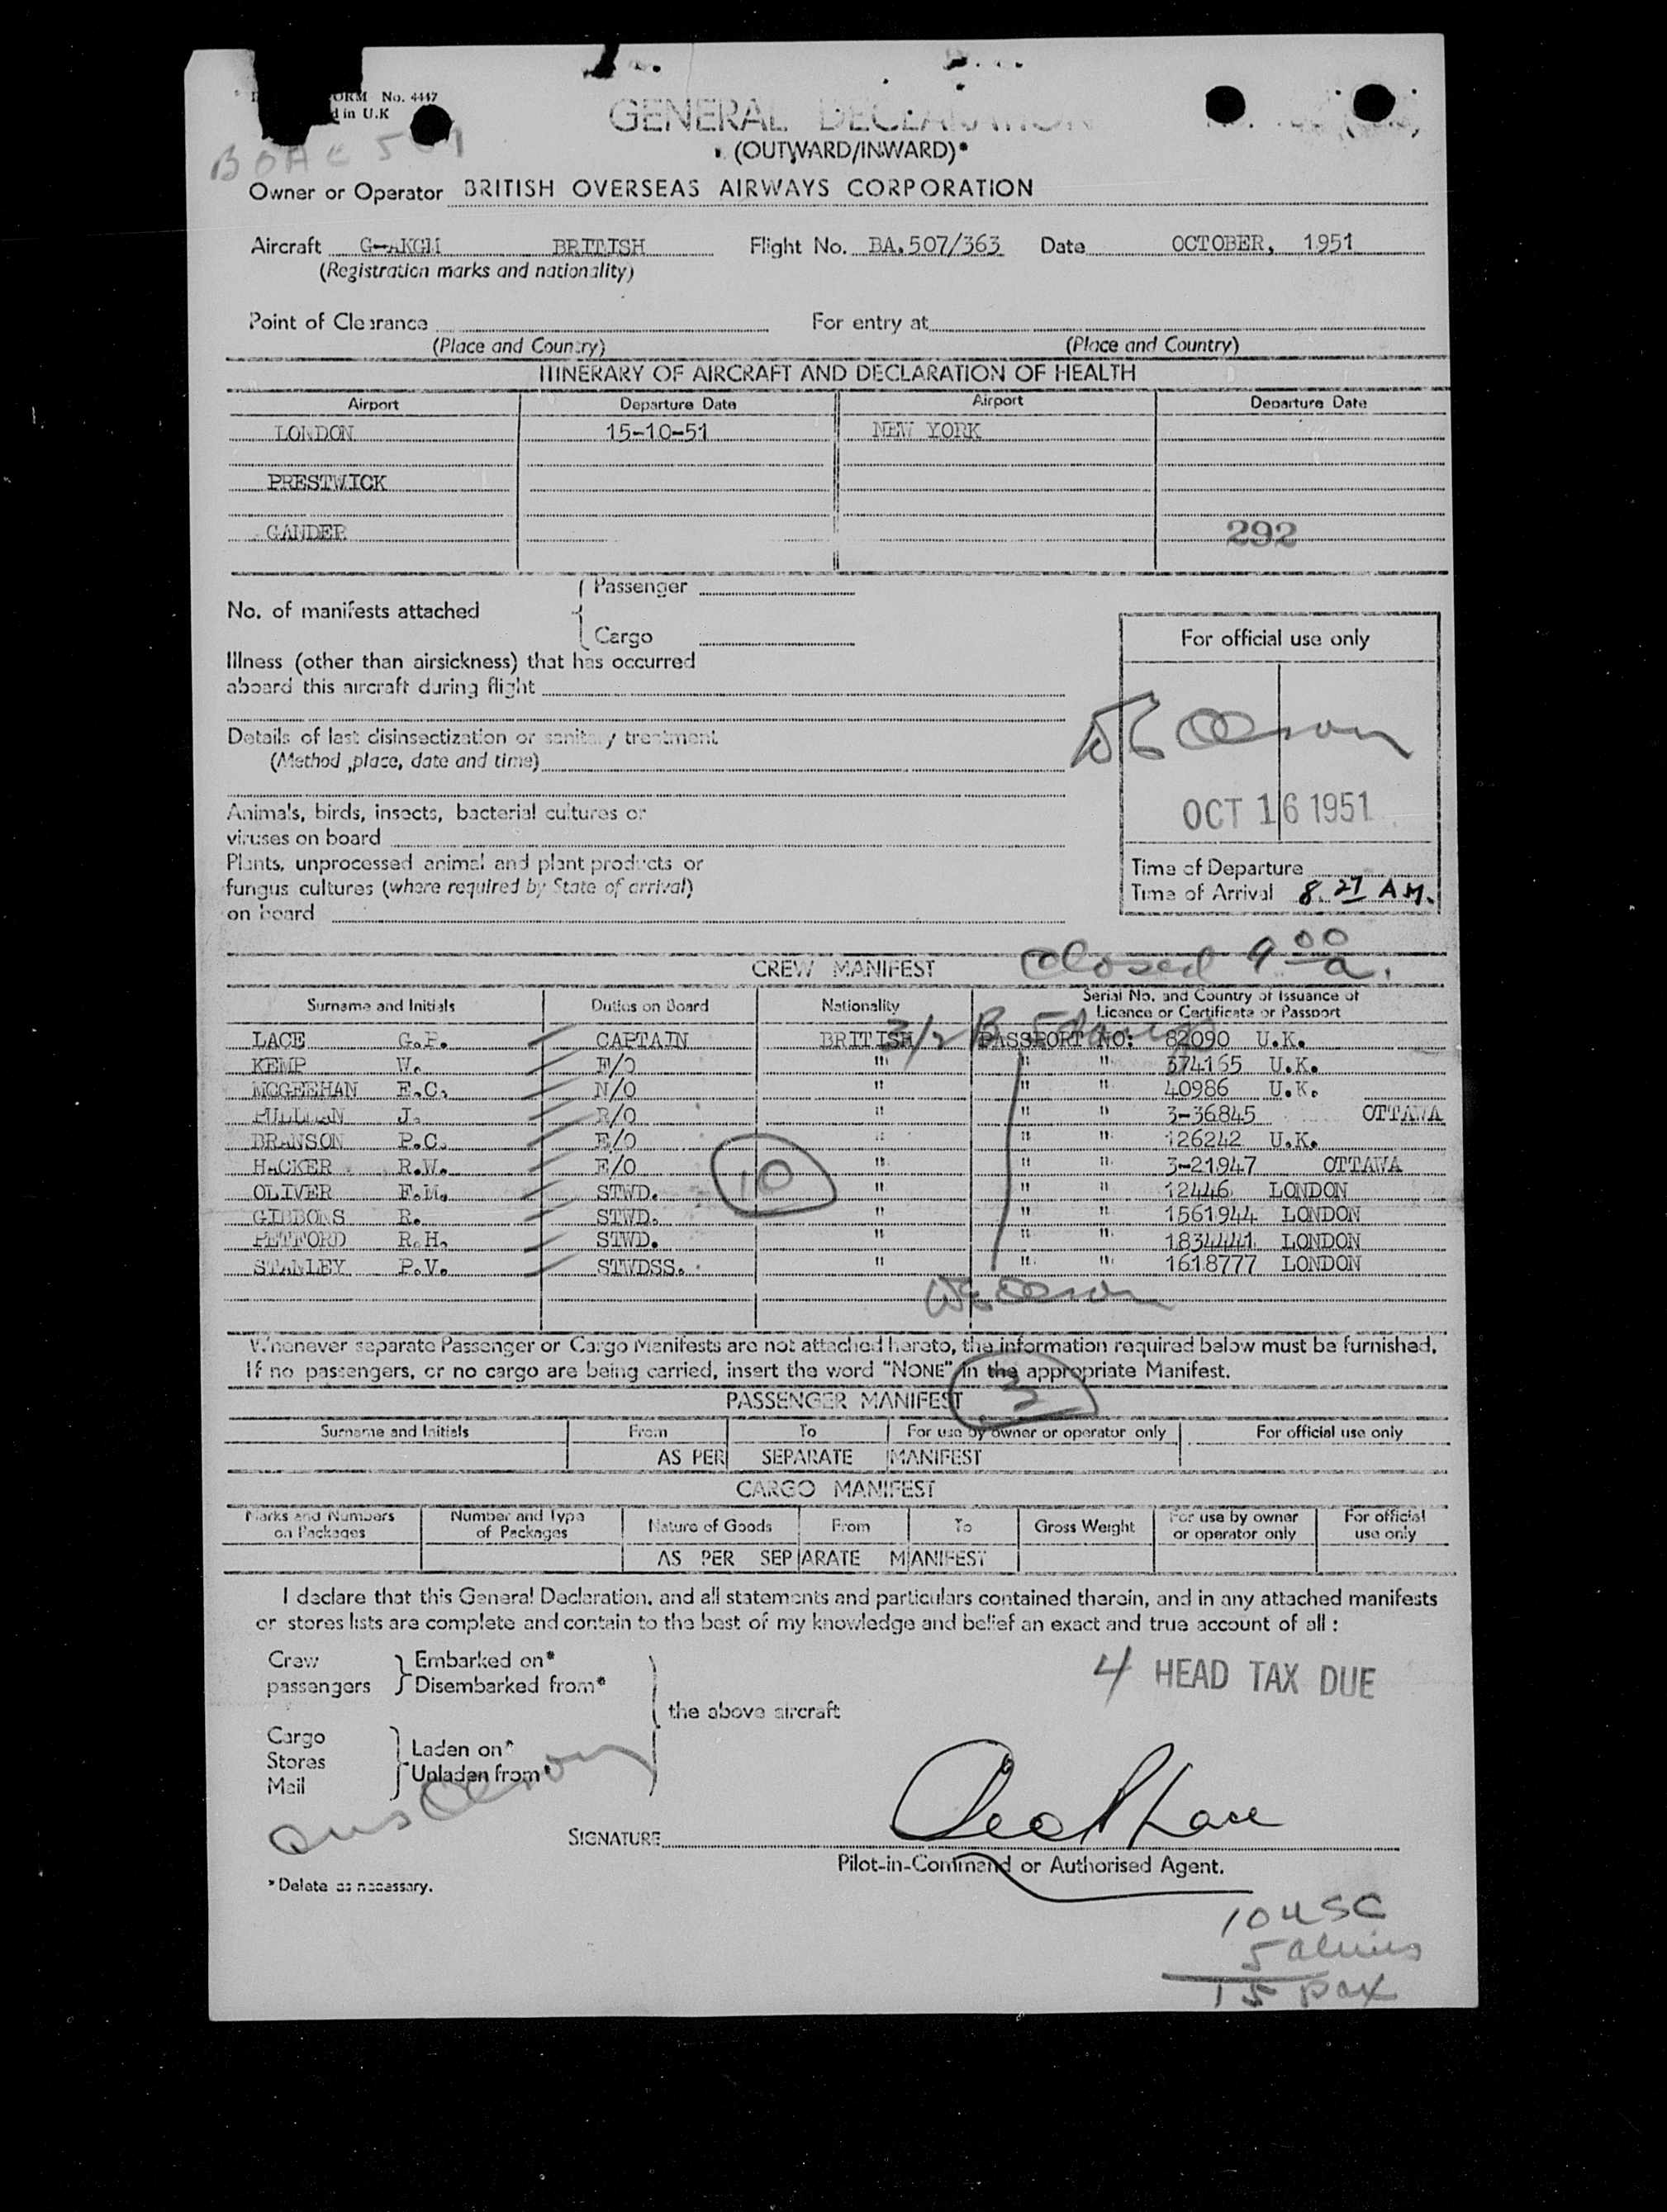 FORM No. 4447
in U.K
BOAC 507
GENERAL DECLARATION
(OUTWARD/INWARD)*
Owner or Operator BRITISH OVERSEAS AIRWAYS CORPORATION
Aircraft G-AKGM BRITISH Flight No. BA.507/363 Date OCTOBER, 1951
(Registration marks and nationality)
Point of Clearance For entry at
(Place and Country) (Place and Country)
ITINERARY OF AIRCRAFT AND DECLARATION OF HEALTH
Airport Departure Date Airport Departure Date
LONDON 15-10-51 NEW YORK
PRESTWICK
GANDER 292
Passenger
No. of manifests attached
Cargo
For official use only
Illness (other than airsickness) that has occurred
aboard this aircraft during flight
Details of last disinsectization or sanitary treatment
(Method, place, date and time)
OCT 16 1951
Animals, birds, insects, bacterial cultures or
viruses on board
Plants, unprocessed animal and plant products or
fungus cultures (where required by State of arrival)
on board
Time of Departure
Time of Arrival 8.27 A.M.
Closed 9 00 a.
CREW MANIFEST
Surname and Initials Duties on Board Nationality Serial No. and Country of Issuance of
Licence or Certificate or Passport
LACE G.P. CAPTAIN BRITISH PASSPORT NO: 82090 U.K.
KEMP W. F/O " " " 374165 U.K.
MCGEEHAN E.C. N/O " " " 40986 U.K.
PULLMAN J. R/O " " " 3-36845 OTTAWA
BRANSON P.C. E/O " " " 126242 U.K.
HACKER R.W. F/O " " " 3-21947 OTTAWA
10
OLIVER F.M. STWD. " " " 12446 LONDON
GIBBONS R. STWD. " " " 1561944 LONDON
PETFORD R.H. STWD. " " " 1834441 LONDON
STANLEY P.V. STWDSS. " " " 1618777 LONDON
Whenever separate Passenger or Cargo Manifests are not attached hereto, the information required below must be furnished.
If no passengers, or no cargo are being carried, insert the word "NONE" in the appropriate Manifest.
3
PASSENGER MANIFEST
Surname and Initials From To For use by owner or operator only For official use only
AS PER SEPARATE MANIFEST
CARGO MANIFEST
Marks and Numbers on Packages Number and Type of Packages Nature of Goods From To Gross Weight For use by owner or operator only For official use only
AS PER SEPARATE MANIFEST
I declare that this General Declaration, and all statements and particulars contained therein, and in any attached manifests
or stores lists are complete and contain to the best of my knowledge and belief an exact and true account of all :
Crew Embarked on*
passengers Disembarked from*
the above aircraft
4 HEAD TAX DUE
Cargo
Stores Laden on*
Mail Unladen from*
SIGNATURE
Pilot-in-Command or Authorised Agent.
*Delete as necessary.
10 USC
5 aliens
15 pax